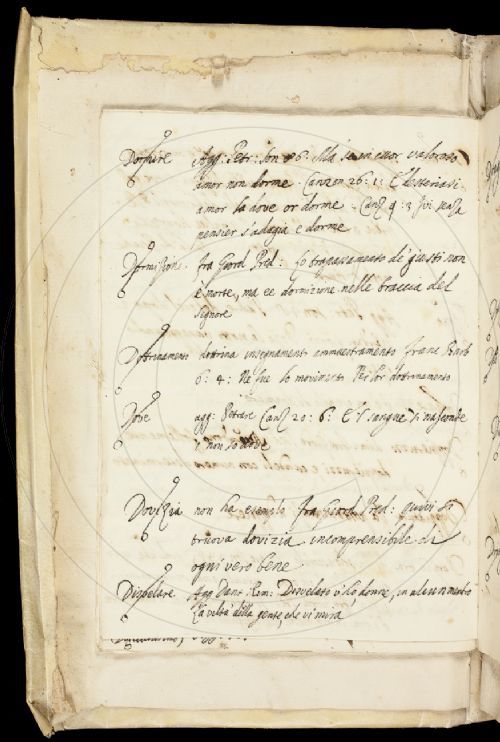 Dormire Agg: Petr: son 86: Ma se in cuor valoroso
amor non dorme. Canzon 26: 1: E desteriasi
amor la dove or dorme. Canz 4: 3 Ivi senza
pensier s'adagia e dorme
Dormizione. fra Giord. Pred: Lo trapassamento de' giusti non
è morte, ma è dormizione nelle braccia del
signore
Dottrinamento dottrina insegnamento ammaestramento Franc Barb
6: 4: Nè fue lo movimento Per lor dottrinamento
Dove agg: Petrar Canz 20: 6: E 'l sangue si nasconde
i' non so dove
Dovizia non ha esempio fra Giord. Pred: quivi si
truova dovizia incomprensibile di
ogni vero bene
Disvelare. Agg. Dant. Rim: Disvelato v'ho, donne, in alcun membro
La viltà della gente, che vi mira